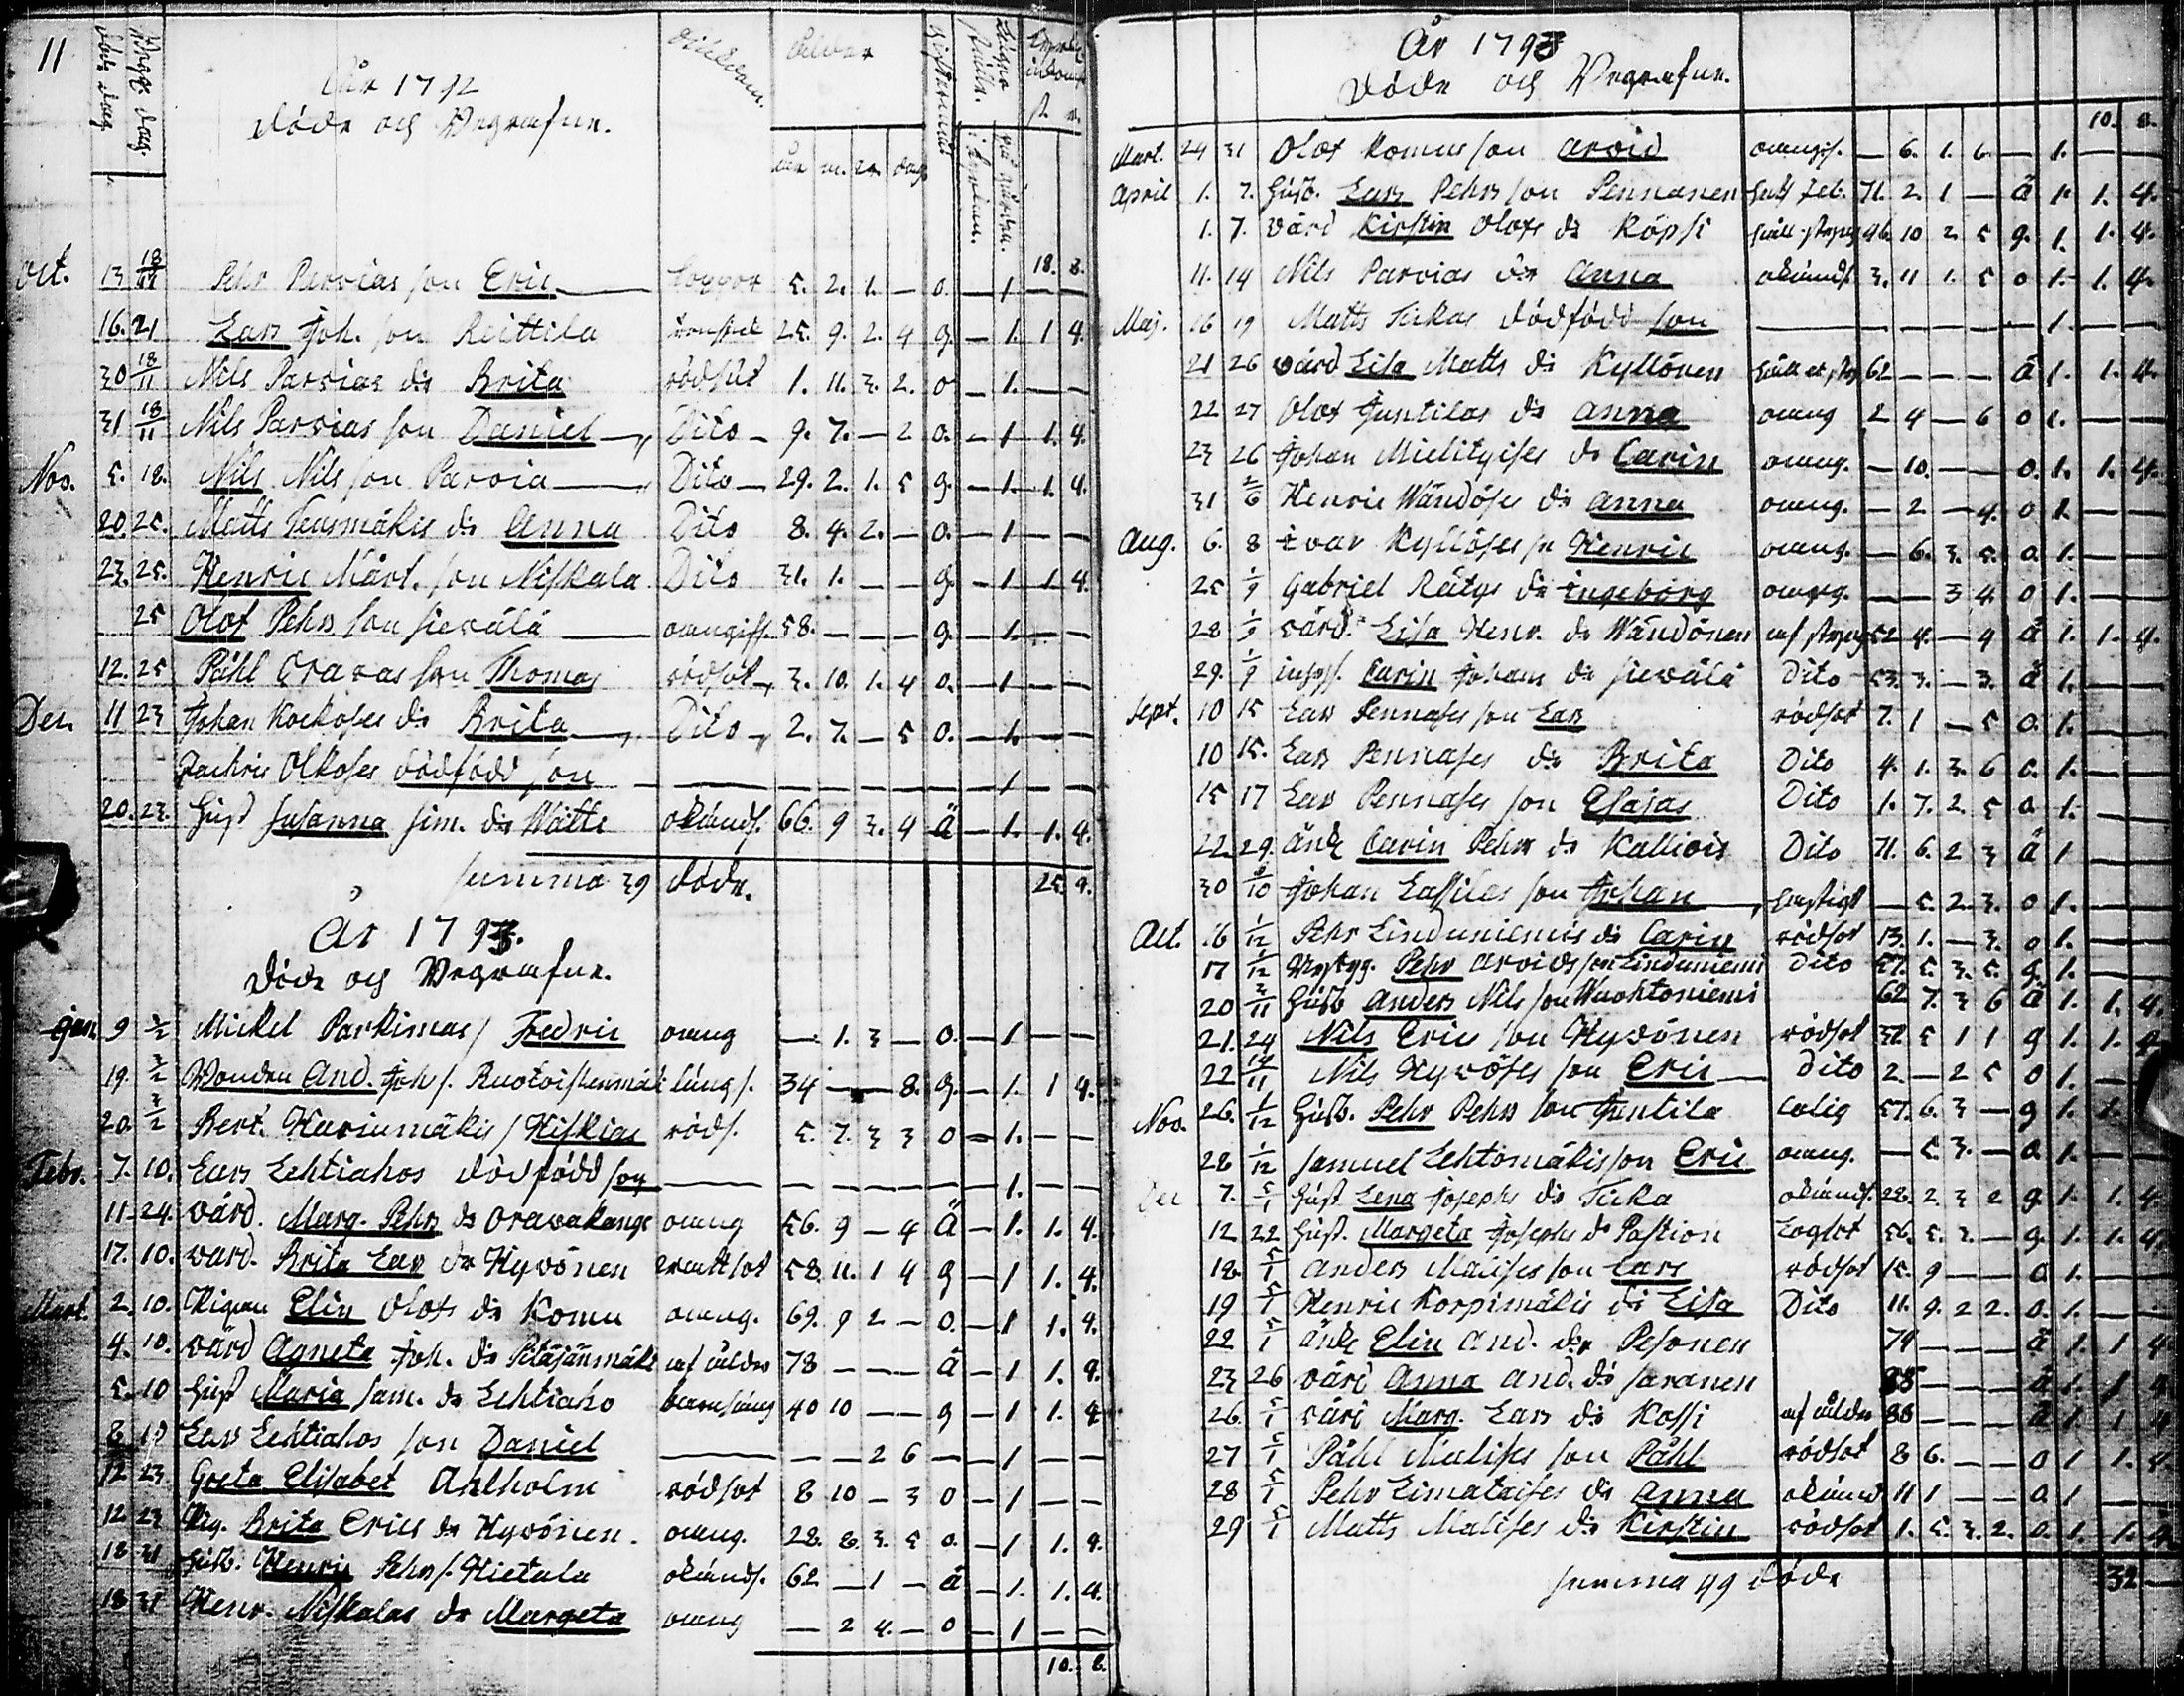 11
döde dag
Begr. dag.
År 1792
Döde och Begrafne.
Sjukdom.
Ålder
år m. v. dag
Oct. 13 18/11 Pehr Parvias son Eric Koppor 5. 2. 1. — o. — 1 — —
16. 21 Lars Joh. son Reittila 25. 9. 2. 4 g. — 1. 1 4.
30 18/11 Nils Parvias dr Brita rödsot 1. 11. 3. 2. o — 1. — —
31 18/11 Nils Parvias son Daniel Dito 9. 7. — 2 o. — 1 1. 4.
Nov. 5. 18. Nils Nils son Parvia Dito 29. 2. 1. 5 g. — 1. 1. 4.
20. 25. Matts Teusmäkis dr Anna Dito 8. 4. 2. — o. — 1 — —
23. 25. Henric Mårt. son Niskala Dito 31. 1. — — g. — 1 1 4.
25 Olof Pehrs son Sievälä omngifs. 58. — — — g. — 1. — —
12. 25 Påhl Oravas son Thomas rödsot 3. 10. 1. 4 o. — 1 — —
Dec. 11 23 Johan Kockoses dr Brita Dito 2. 7. — 5 o. — 1. — —
Zachris Olkoses dödfödd son — — — — — — 1 — —
20. 23. Hust Susanna Sim. dr Wätte okänds. 66. 9 3. 4 ä — 1. 1. 4.
Summa 39 döde. 25. 4.
År 1793.
Döde och Begrafne.
Jan. 9 3/2 Mickel Parkimas s Fredric omng — 1. 3 — o. — 1 — —
19. 3/2 Bonden And. Joh s. Ruotoistenmäki lungs. 34 — — 8. g. — 1. 1 4.
20. 3/2 Bert. Harjumäkis s Hiskias röds. 5. 7. 3 3 o — 1. — —
Febr. 7. 10. Lars Lehtiahos dödfödd son — — — — — — 1. — —
11 24. värd. Marg. Pehrs dr Oravakangs omng 56. 9 — 4 Ä — 1. 1. 4.
17. 10. värd. Brita Lars dr Hyvönen 58. 11. 1 4 g — 1 1. 4.
Mart. 2. 10. Pigan Elin Olofs dr Komu omng. 69. 9 2 — o. — 1 1. 4.
4. 10. värd Agneta Joh. dr Petäjänmäki af ålder 78 — — — ä — 1 1. 4.
5. 10 Hust Maria Sam. dr Lehtiaho barnsäng 40 10 — — g — 1 1. 4
8 10 Lars Lehtiahos son Daniel — — — 2 6 — — 1 — —
12 23. Greta Elisabet Ahlholm rödsot 8 10 — 3 o — 1 — —
12 23 Pig. Brita Erics dr Hyvönen. omng. 28. 8. 3. 5 o. — 1 1. 4.
18 31 Husb. Henric Pehrs s. Hietala okänds. 62 — 1 — ä — 1. 1. 4.
18 31 Henr. Niskalas dr Margeta omng — 2 4. — o — 1 — —
10. 8.
År 1793
Döde och Begrafne.
10. 8.
Mart. 24 31 Olof Komus son Arvid omngifs. — 6. 1. 6. — 1. — —
April 1. 7. Husb. Lars Pehrs son Pennanen 71. 2. 1 — ä 1. 1. 4.
1. 7. värd Kirstin Olofs dr Röpsi 46. 10 2. 5 g. 1. 1. 4.
11. 14 Nils Parvias dr Anna okänds. 3. 11 1. 5 o 1. 1. 4.
Maj. 16 19 Matts Tickas dödfödd son — — — — — — 1. — —
21 26 värd Lisa Matts dr Kyllönen 62 — — — ä 1. 1. 4.
22 27 Olof Juntilas dr Anna omng 2 4 — 6 o 1. — —
23 26 Johan Mielityises dr Carin omng. — 10. — — o. 1. 1. 4.
31 2/6 Henric Wändöses dr Anna omng. — 2 — 4. o 1. — —
Aug. 6. 8 Ivar Kyllöses sn Henric omng. — 6. 3. 5. o. 1. — —
25 1/9 Gabriel Rätys dr Ingeborg omng. — — 3 4. o 1. — —
28 1/9 värd. Lisa Henr. dr Wändönen 52 4. — 4 ä 1. 1. 4.
29. 1/9 inhys. Carin Johans dr Sievälä Dito 53. 3. — 3. ä 1. — —
Sept. 10 15 Lars Pennases son Lars rödsot 7. 1 — 5 o. 1. — —
10 15. Lars Pennases dr Brita Dito 4. 1. 3. 6 o. 1. — —
15 17 Lars Pennases son Esajas Dito 1. 7. 2. 5 o. 1. — —
22. 29. änk Carin Pehrs dr Kallioin Dito 71. 6. 2 3 ä 1 — —
30 /10 Johan Lassilas son Johan hastigt — 5. 2. 3. o 1. — —
Oct. 16 1/12 Pehr Linduniemis dr Carin rödsot 13. 1. — 3. o 1. — —
17 1/12 Pehr Arvids son Linduniemi Dito 57. 5. 3. 5. g. 1. — —
20 3/11 Husb Anders Nils son Wuohtoniemi 62 7. 3 6 ä 1. 1. 4.
21. 24 Nils Erics son Hyvönen rödsot 32. 5 1 1 g 1. 1. 4.
22 14/11 Nils Hyvöses son Eric Dito 2. — 2 5 o 1. — —
Nov. 26. 1/12 Husb. Pehr Pehrs son Juntila colig 57. 6. 3 — g 1. 1.
28 1/12 Samuel Lehtomäkis son Eric omng. — 5 3. — o 1. — —
Dec 7. 5/1 Hust Lena Josephs dr Ticka okänds. 28. 2. 3 2 g. 1. 1. 4
12 22 Hust. Margeta Josephs dr Pastion 56. 5. 2. — g. 1. 1. 4.
18. 5/1 Anders Malises son Lars rödsot 15. 9 — — o 1. — —
19 5/1 Henric Korpimäkis dr Lisa Dito 11. 9. 2 2. o. 1. — —
22 5/1 änk Elin And. dr Pesonen 74 — — — ä 1. 1 4
23 26 värd Anna And. dr Saranen 88 — — — ä 1. 1 4
26. 5/1 värd Marg. Lars dr Kossi af ålder 88 — — — ä 1. 1 4
27 5/1 Påhl Malises son Påhl rödsot 8 6. — — o 1 1. 4
28 5/1 Pehr Limataises dr Anna okänd 11 1 — — o 1 —
29 5/1 Matts Malises dr Kirstin rödsot 1. 5. 3. 2. o. 1. 1. 4.
Summa 49 döde 32 —